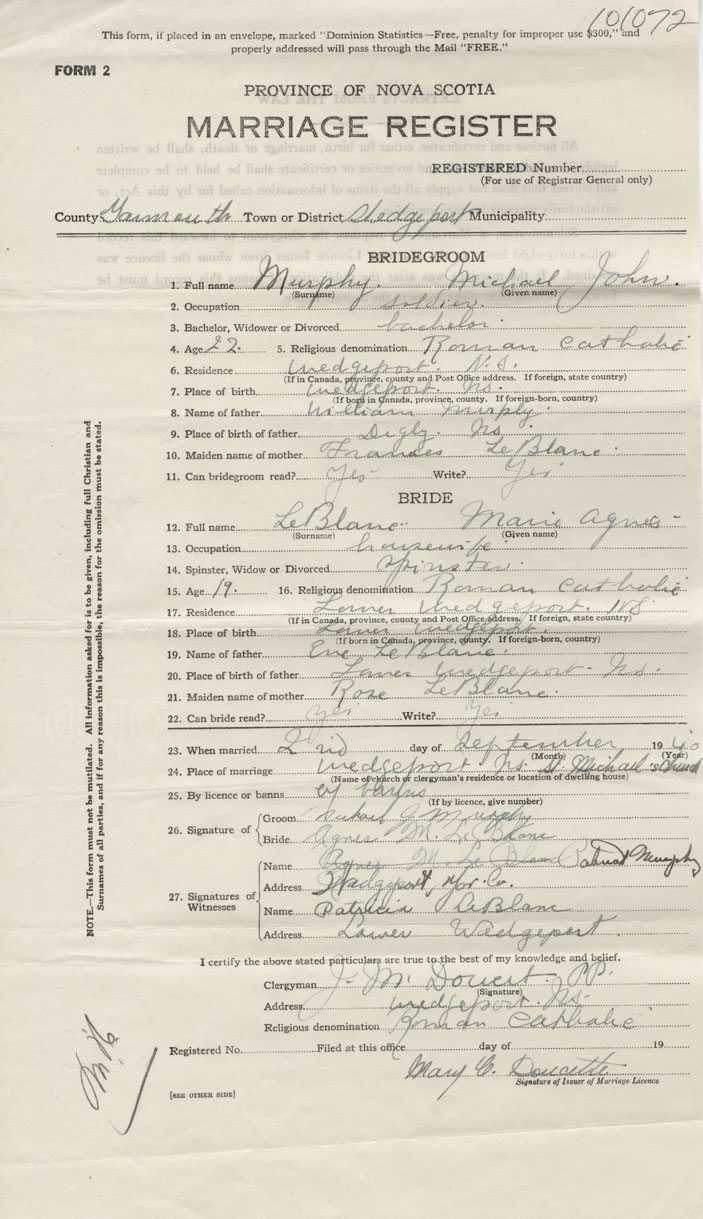 101072
This form, if placed in an envelope, marked "Dominion Statistics—Free, penalty for improper use $300," and
properly addressed will pass through the Mail "FREE."
FORM 2
PROVINCE OF NOVA SCOTIA
MARRIAGE REGISTER
REGISTERED Number
(For use of Registrar General only)
County Yarmouth Town or District Wedgeport Municipality
BRIDEGROOM
1. Full name Murphy. Michael John.
(Surname) (Given name)
2. Occupation soldier.
3. Bachelor, Widower or Divorced bachelor
4. Age 22. 5. Religious denomination Roman Catholic
6. Residence Wedgeport. N.S.
(If in Canada, province, county and Post Office address. If foreign, state country)
7. Place of birth Wedgeport. Ns.
(If born in Canada, province, county. If foreign-born, country)
8. Name of father William Murphy.
9. Place of birth of father Digby. Ns.
10. Maiden name of mother Frances LeBlanc.
11. Can bridegroom read? Yes Write? Yes
BRIDE
12. Full name LeBlanc. Marie Agnes
(Surname) (Given name)
13. Occupation housewife.
14. Spinster, Widow or Divorced spinster
15. Age 19. 16. Religious denomination Roman Catholic
17. Residence Lower Wedgeport. NS
(If in Canada, province, county and Post Office address. If foreign, state country)
18. Place of birth Lower Wedgeport.
(If born in Canada, province, county. If foreign-born, country)
19. Name of father LeBlanc.
20. Place of birth of father Lower Wedgeport. Ns.
21. Maiden name of mother Rose LeBlanc.
22. Can bride read? Yes Write? Yes
23. When married 2nd day of September 1940
(Month) (Year)
24. Place of marriage Wedgeport Ns. St. Michael's Church
(Name of church or clergyman's residence or location of dwelling house)
25. By licence or banns by banns
(If by licence, give number)
26. Signature of
Groom Michael J Murphy
Bride Agnes M. Le Blanc
27. Signatures of Witnesses
Name Agnes M. Le Blanc Murphy
Address Wedgeport, Yar. Co.
Name Patricia LeBlanc
Address Lower Wedgeport.
I certify the above stated particulars are true to the best of my knowledge and belief.
Clergyman J. M. Doucet. PP.
(Signature)
Address Wedgeport. Ns.
Religious denomination Roman Catholic
Registered No. Filed at this office day of 19
Mary C. Doucette
Signature of Issuer of Marriage Licence
[SEE OTHER SIDE]
NOTE.—This form must not be mutilated. All information asked for is to be given, including full Christian and
Surnames of all parties, and if for any reason this is impossible, the reason for the omission must be stated.